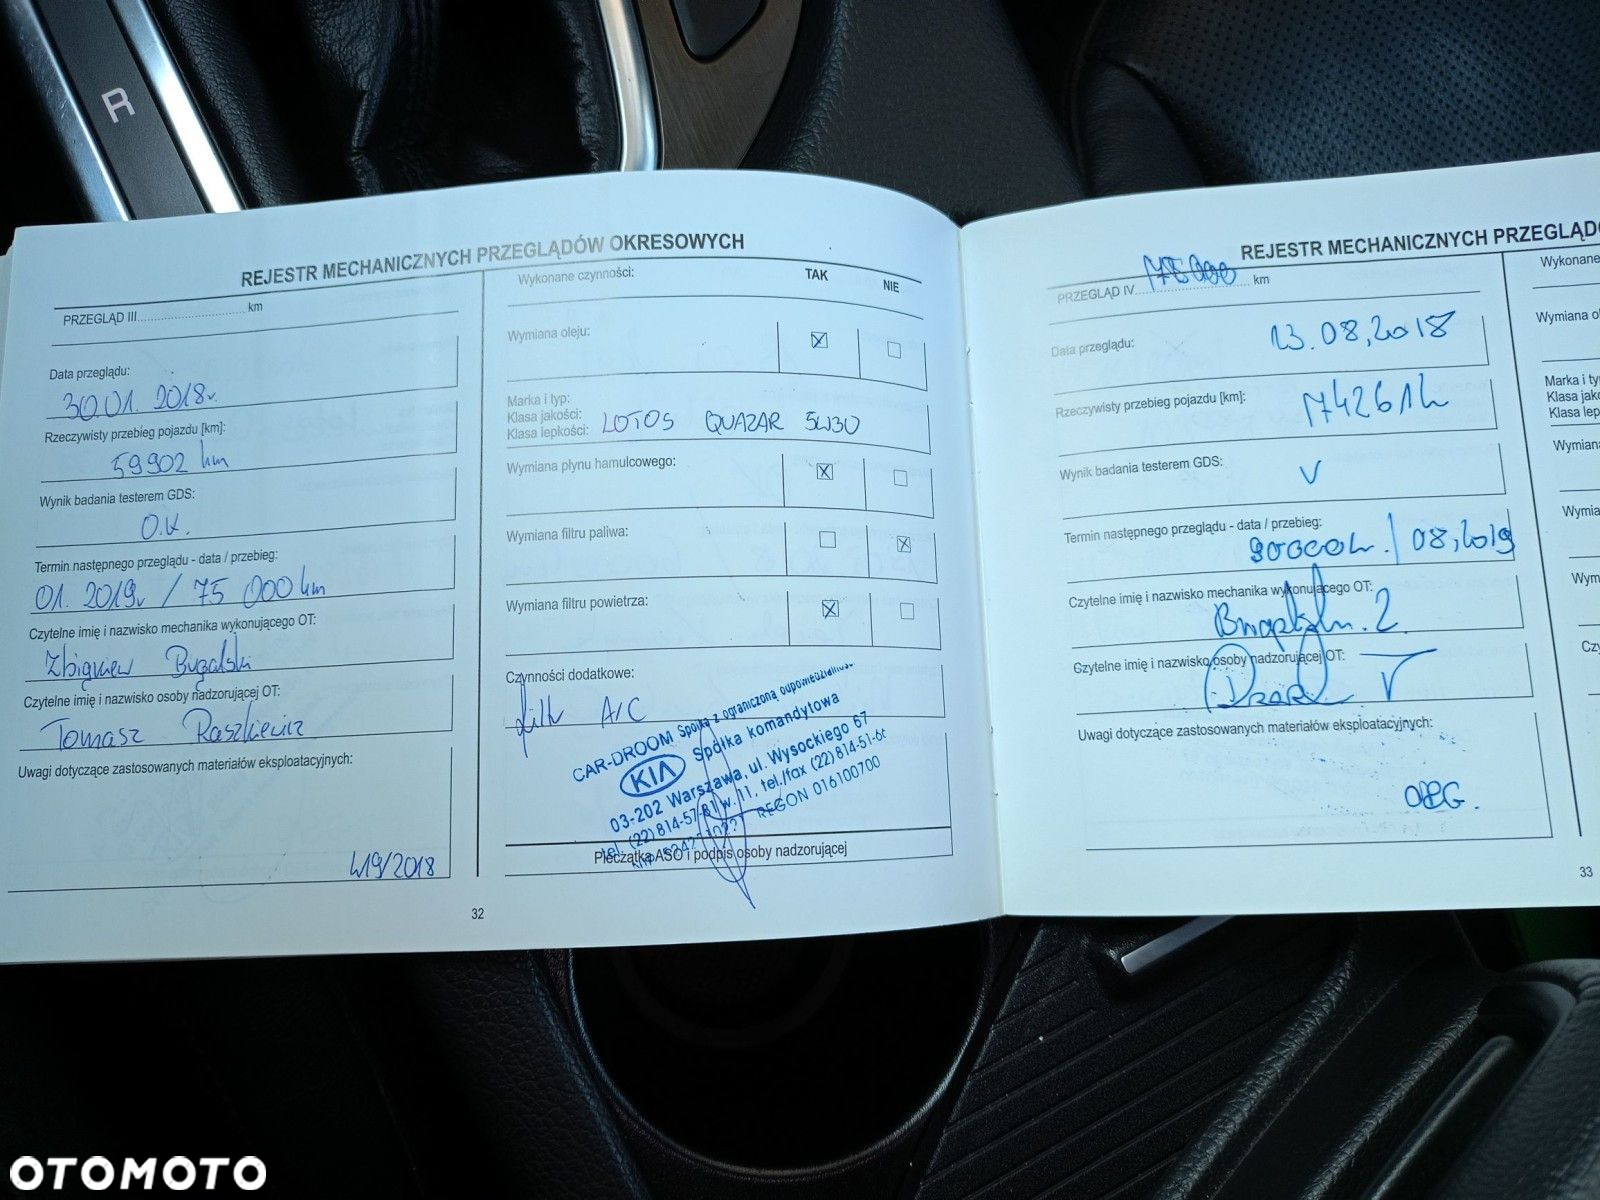 R
REJESTR MECHANICZNYCH PRZEGLĄDÓW OKRESOWYCH
PRZEGLĄD III.............................. km
Data przeglądu:
30.01.2018r.
Rzeczywisty przebieg pojazdu [km]:
59902 km
Wynik badania testerem GDS:
O.K.
Termin następnego przeglądu - data / przebieg:
01. 2019r / 75 000 km
Czytelne imię i nazwisko mechanika wykonującego OT:
Zbigniew
Czytelne imię i nazwisko osoby nadzorującej OT:
Tomasz Raszkiewicz
Uwagi dotyczące zastosowanych materiałów eksploatacyjnych:
419/2018
32
Wykonane czynności:
TAK
NIE
Wymiana oleju:
Marka i typ:
Klasa jakości:
Klasa lepkości: LOTOS QUAZAR 5W30
Wymiana płynu hamulcowego:
Wymiana filtru paliwa:
Wymiana filtru powietrza:
Czynności dodatkowe:
filtr A/C
CAR-DROOM Spółka z ograniczoną odpowiedzialnością
KIA Spółka komandytowa
03-202 Warszawa, ul. Wysockiego 67
tel. (22) 814-57-81 w. 11, tel./fax (22) 814-51-6
REGON 016100700
Pieczątka ASO i podpis osoby nadzorującej
REJESTR MECHANICZNYCH PRZEGLĄD
PRZEGLĄD IV 75000 km
Data przeglądu:
23.08,2018
Rzeczywisty przebieg pojazdu [km]:
74261
Wynik badania testerem GDS:
V
Termin następnego przeglądu - data / przebieg:
90000 / 08,2019
Czytelne imię i nazwisko mechanika wykonującego OT:
Czytelne imię i nazwisko osoby nadzorującej OT:
Uwagi dotyczące zastosowanych materiałów eksploatacyjnych:
33
Wykonane
Wymiana o
Marka i ty
Klasa jako
Klasa lep
Wymian
Wymia
Wym
OTOMOTO